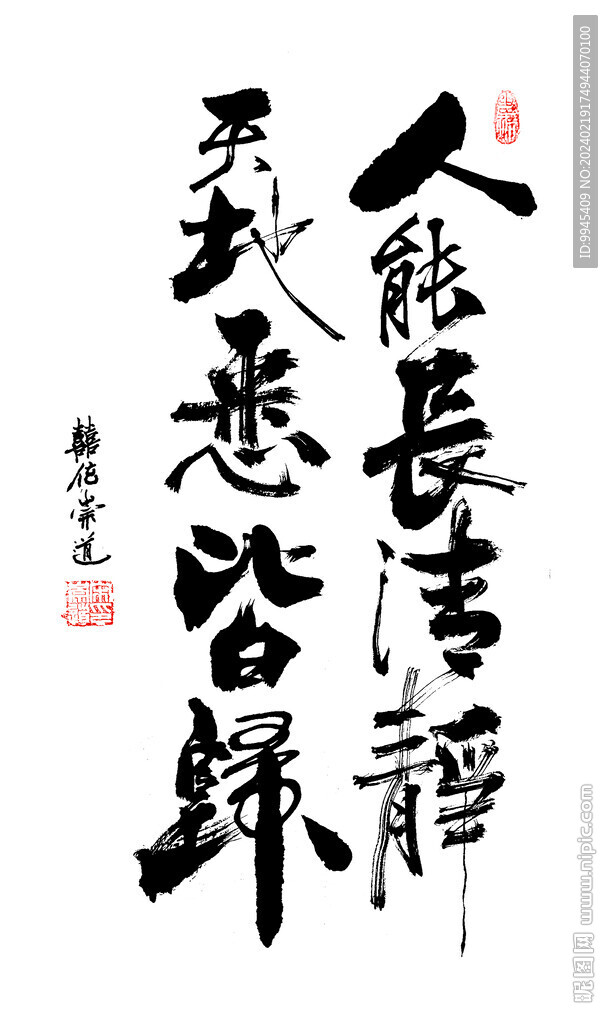 人能長清靜
天地悉皆歸
崇道
ID:9945409 NO:20240219174944070100
昵图网 www.nipic.com